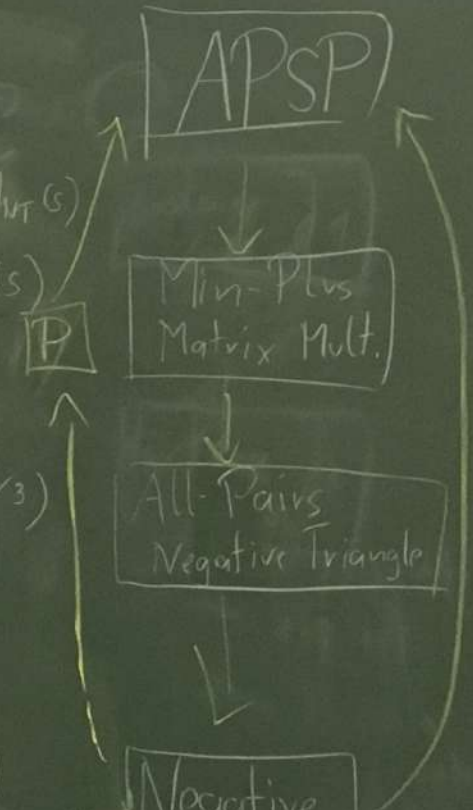 APSP
P
Min-Plus
Matrix Mult.
All-Pairs
Negative Triangle
Negative